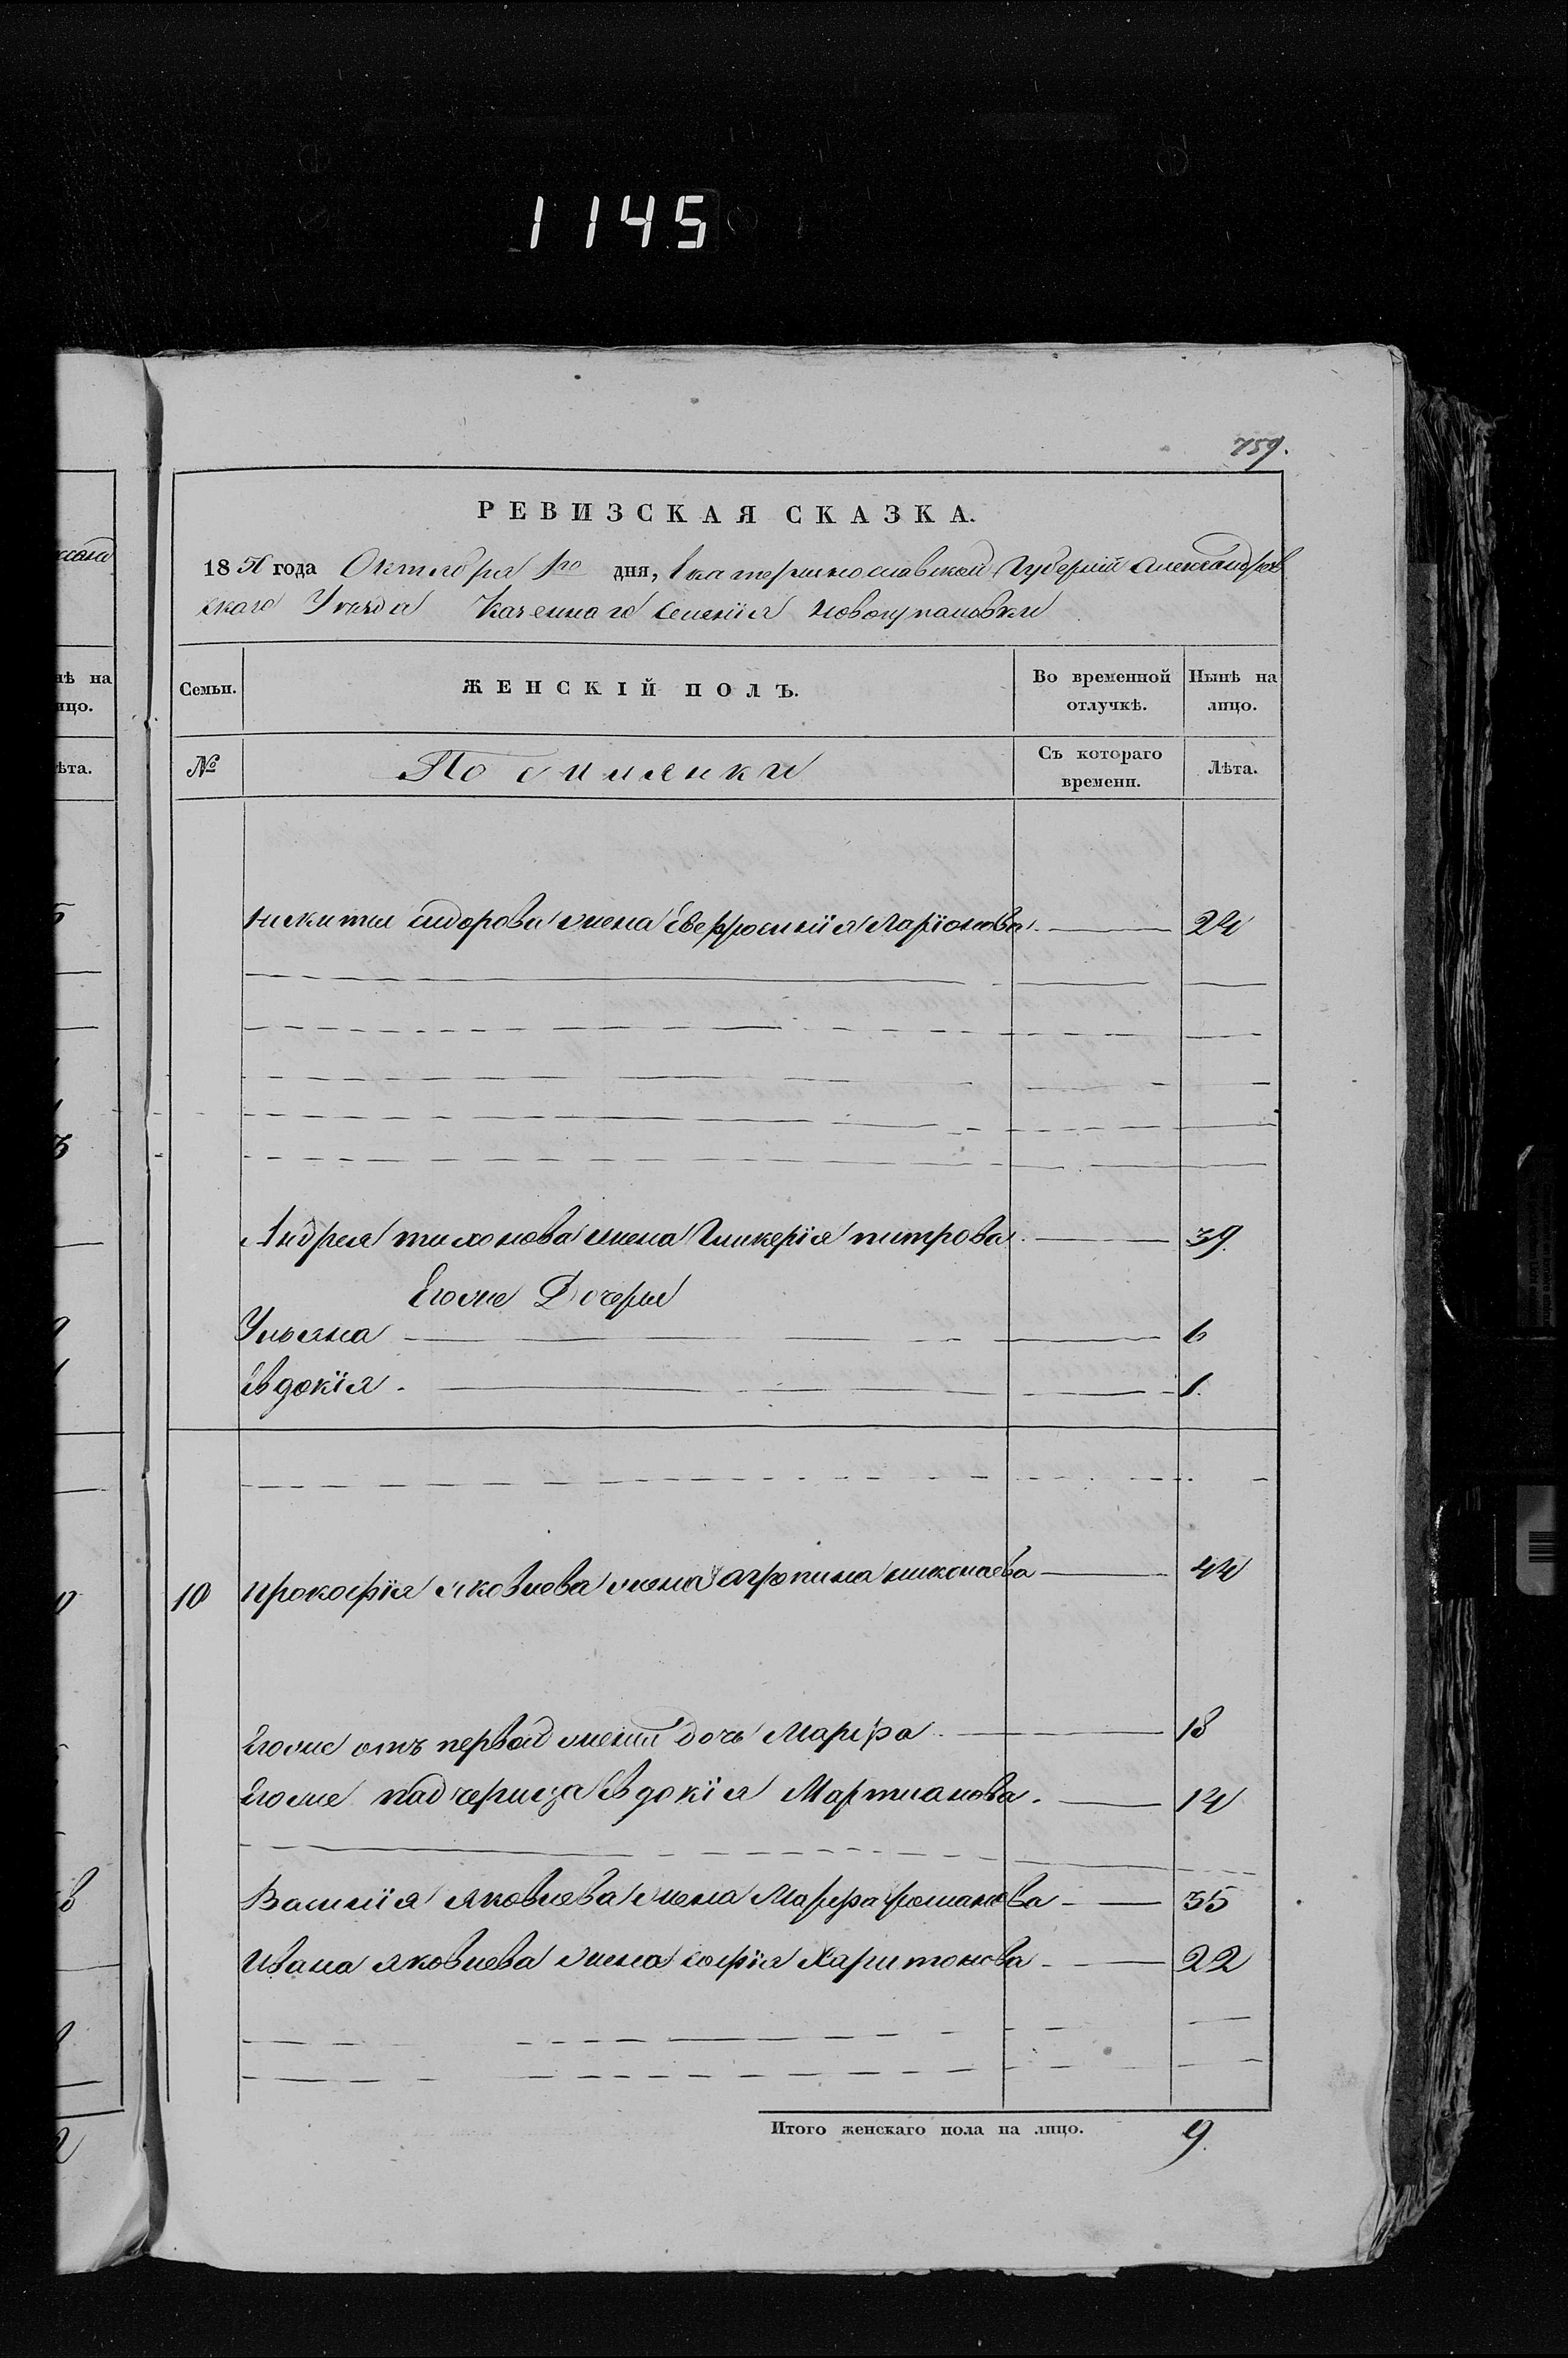 1145
759.
РЕВИЗСКАЯ СКАЗКА.
1850 года Октября 1го дня, Екатеринославской Губернiи Александров
скаго Уезда Казеннаго Селенiя
Семьи. ЖЕНСКIЙ ПОЛЪ. Во временной отлучкѣ. Нынѣ на лицо.
№ Съ котораго времени. Лѣта.
Никиты сидорова жена Евфросинiя Ларiонова 24
Андрея тихонова жена Гликерiя петрова 39.
Егоже Дочеры
Ульяна 6
Евдокiя 1.
10 Прокофiя яковлева жена агропина николаева 44
Егоже отъ первой жены дочь Марфа 18
Егоже падчерица Евдокiя Мартианова 14
Василiя яковлева жена Марфа романова 35
Ивана яковлева жена софiя Харитонова 22
Итого женскаго пола на лицо. 9.
нѣ на
ицо.
ѣта.